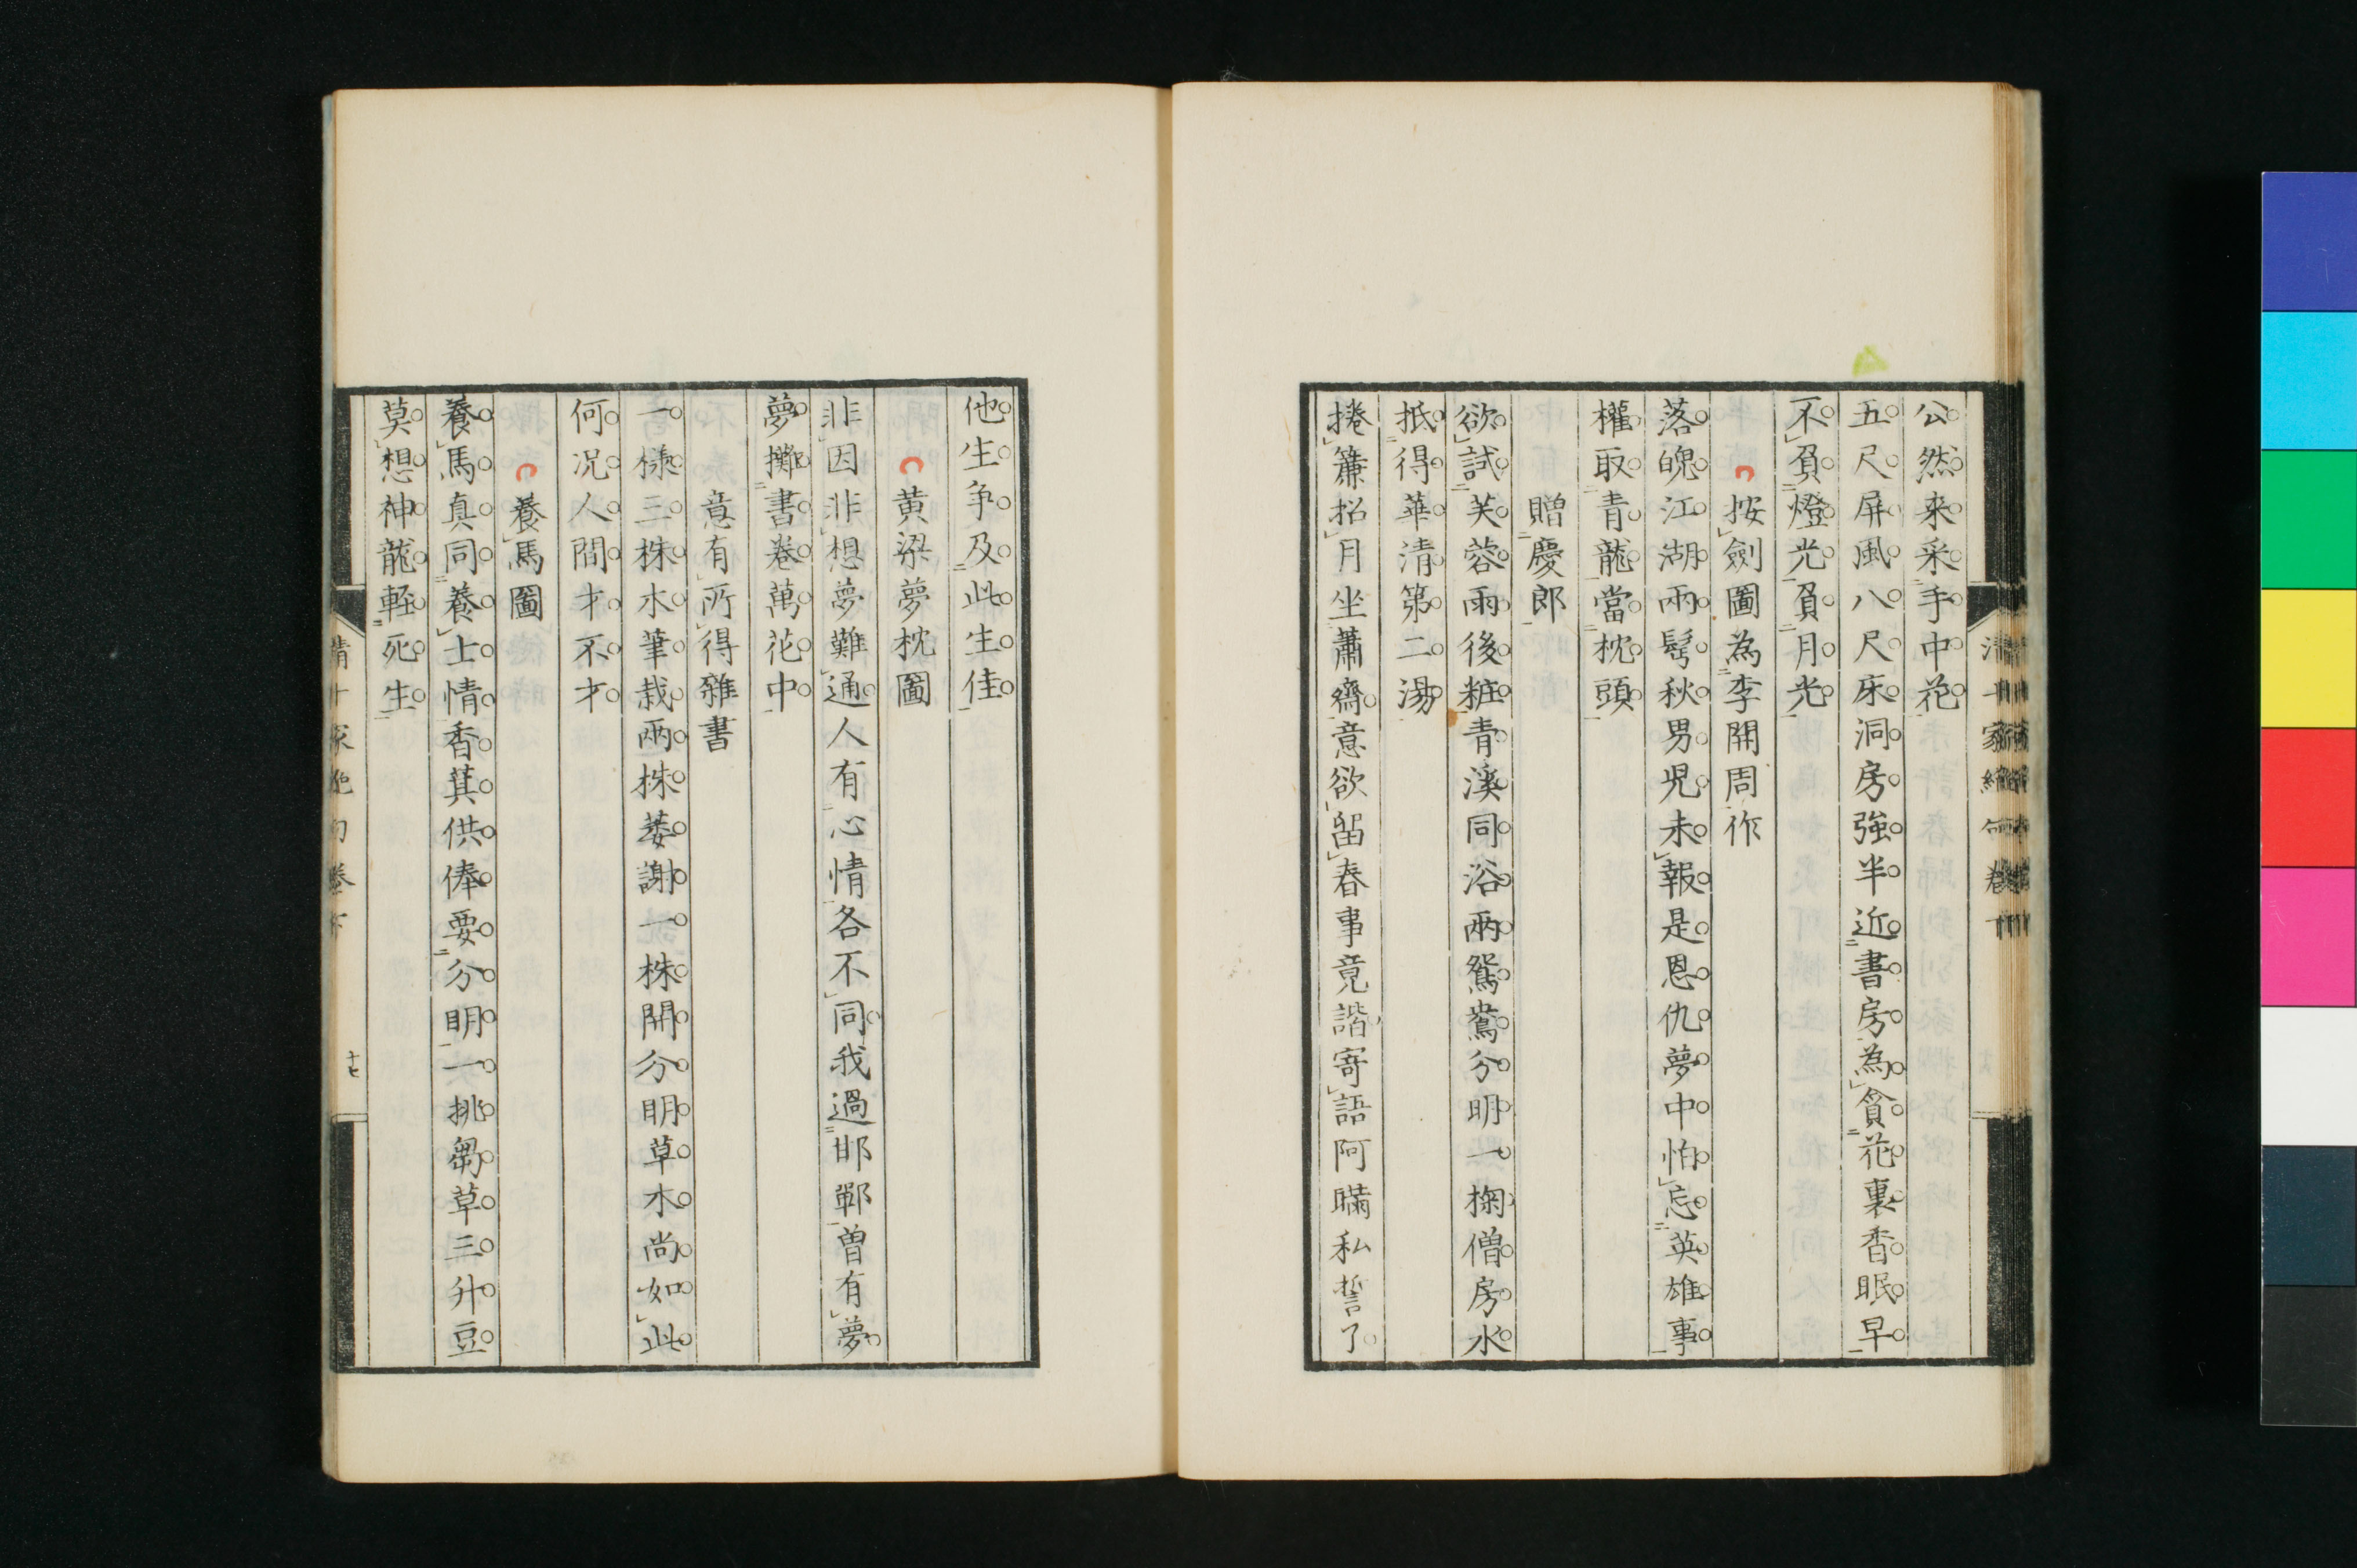 公然来采手中花
五尺屏風八尺床洞房強半近書房為貧花裏香眠早
不負燈光負月光
按劍圖為李開周作
落魄江湖雨髩秋男児未報是恩仇夢中怕忘英雄事
權取青龍當枕頭
贈慶郎
欲試芙蓉雨後粧青溪同浴兩鴛鴦分明一掬僧房水
抵得華清第二湯
捲簾招月坐蕭齋意欲留春事竟諧寄語阿瞞私誓了
他生争及此生佳
黄梁夢枕圖
非因非想夢難通人有心情各不同我過邯鄲曽有夢
夢擲書卷萬花中
意有所得雜書
一樣三株木筆栽兩株萎謝一株開分明草木尚如此
何况人間才不才
養馬圖
養馬真同養士情香萁供俸要分明一挑芻草三升豆
莫想神龍軽死生
十七